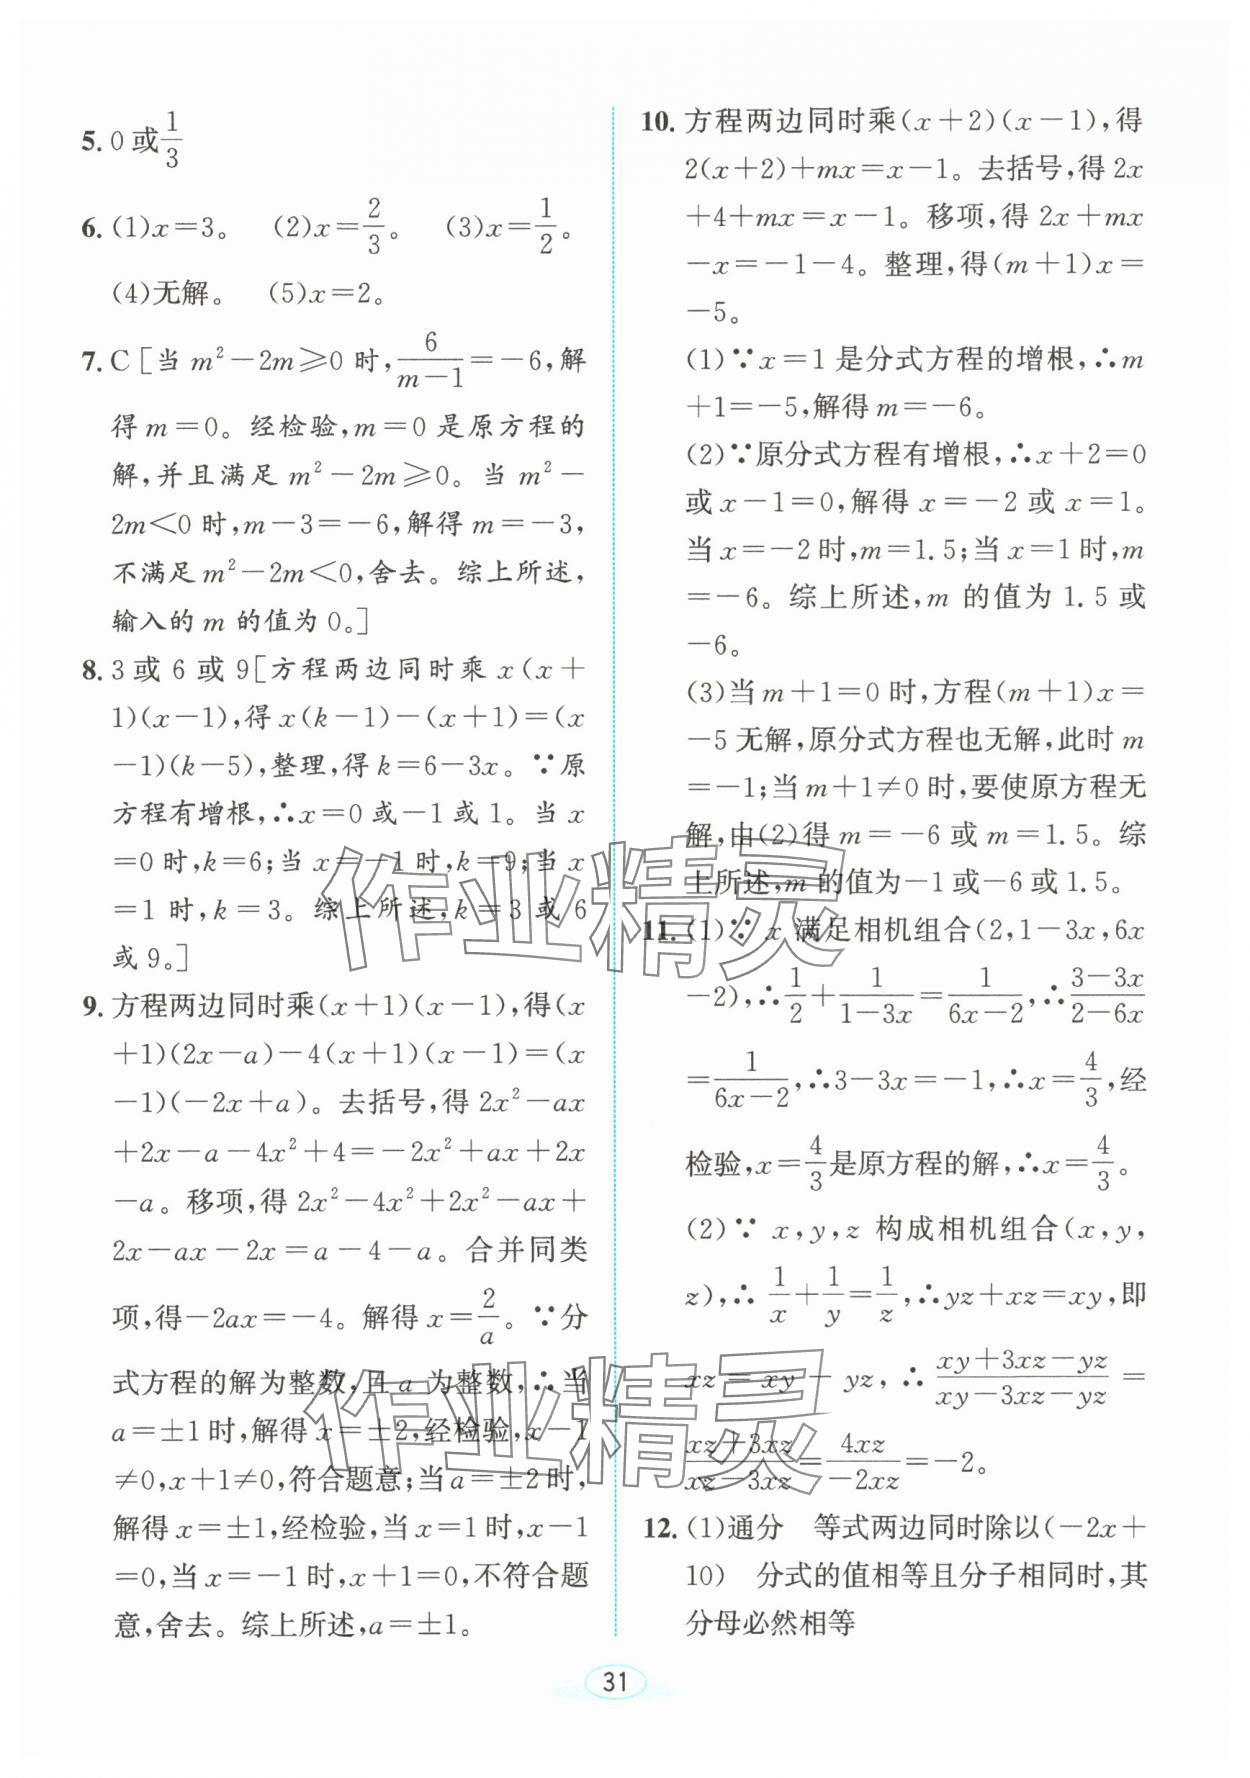 5. 0 或 1/3
6. (1)x=3。 (2)x=2/3。 (3)x=1/2。
(4)无解。 (5)x=2。
7. C [当 m²-2m≥0 时, 6/(m-1)=-6,解
得 m=0。经检验,m=0 是原方程的
解,并且满足 m²-2m≥0。当 m²-
2m<0 时,m-3=-6,解得 m=-3,
不满足 m²-2m<0,舍去。综上所述,
输入的 m 的值为 0。]
8. 3 或 6 或 9[方程两边同时乘 x(x+
1)(x-1),得 x(k-1)-(x+1)=(x
-1)(k-5),整理,得 k=6-3x。∵原
方程有增根,∴x=0 或-1 或 1。当 x
=0 时,k=6;当 x=-1 时,k=9;当 x
=1 时,k=3。综上所述,k=3 或 6
或 9。]
9. 方程两边同时乘(x+1)(x-1),得(x
+1)(2x-a)-4(x+1)(x-1)=(x
-1)(-2x+a)。去括号,得 2x²-ax
+2x-a-4x²+4=-2x²+ax+2x
-a。移项,得 2x²-4x²+2x²-ax+
2x-ax-2x=a-4-a。合并同类
项,得-2ax=-4。解得 x=2/a。∵分
式方程的解为整数,且 a 为整数,∴当
a=±1 时,解得 x=±2,经检验,x-1
≠0,x+1≠0,符合题意;当 a=±2 时,
解得 x=±1,经检验,当 x=1 时,x-1
=0,当 x=-1 时,x+1=0,不符合题
意,舍去。综上所述,a=±1。
10. 方程两边同时乘(x+2)(x-1),得
2(x+2)+mx=x-1。去括号,得 2x
+4+mx=x-1。移项,得 2x+mx
-x=-1-4。整理,得(m+1)x=
-5。
(1)∵x=1 是分式方程的增根,∴m
+1=-5,解得 m=-6。
(2)∵原分式方程有增根,∴x+2=0
或 x-1=0,解得 x=-2 或 x=1。
当 x=-2 时,m=1.5;当 x=1 时,m
=-6。综上所述,m 的值为 1.5 或
-6。
(3)当 m+1=0 时,方程(m+1)x=
-5 无解,原分式方程也无解,此时 m
=-1;当 m+1≠0 时,要使原方程无
解,由(2)得 m=-6 或 m=1.5。综
上所述,m 的值为-1 或-6 或 1.5。
11. (1)∵ x 满足相机组合(2,1-3x,6x
-2),∴1/2+1/(1-3x)=1/(6x-2),∴(3-3x)/(2-6x)
=1/(6x-2),∴3-3x=-1,∴x=4/3,经
检验,x=4/3是原方程的解,∴x=4/3。
(2)∵ x,y,z 构成相机组合(x,y,
z),∴1/x+1/y=1/z,∴yz+xz=xy,即
xz=xy-yz,∴(xy+3xz-yz)/(xy-3xz-yz)=
(xz+3xz)/(xz-3xz)=4xz/(-2xz)=-2。
12. (1)通分 等式两边同时除以(-2x+
10) 分式的值相等且分子相同时,其
分母必然相等
31
作业精灵
作业精灵